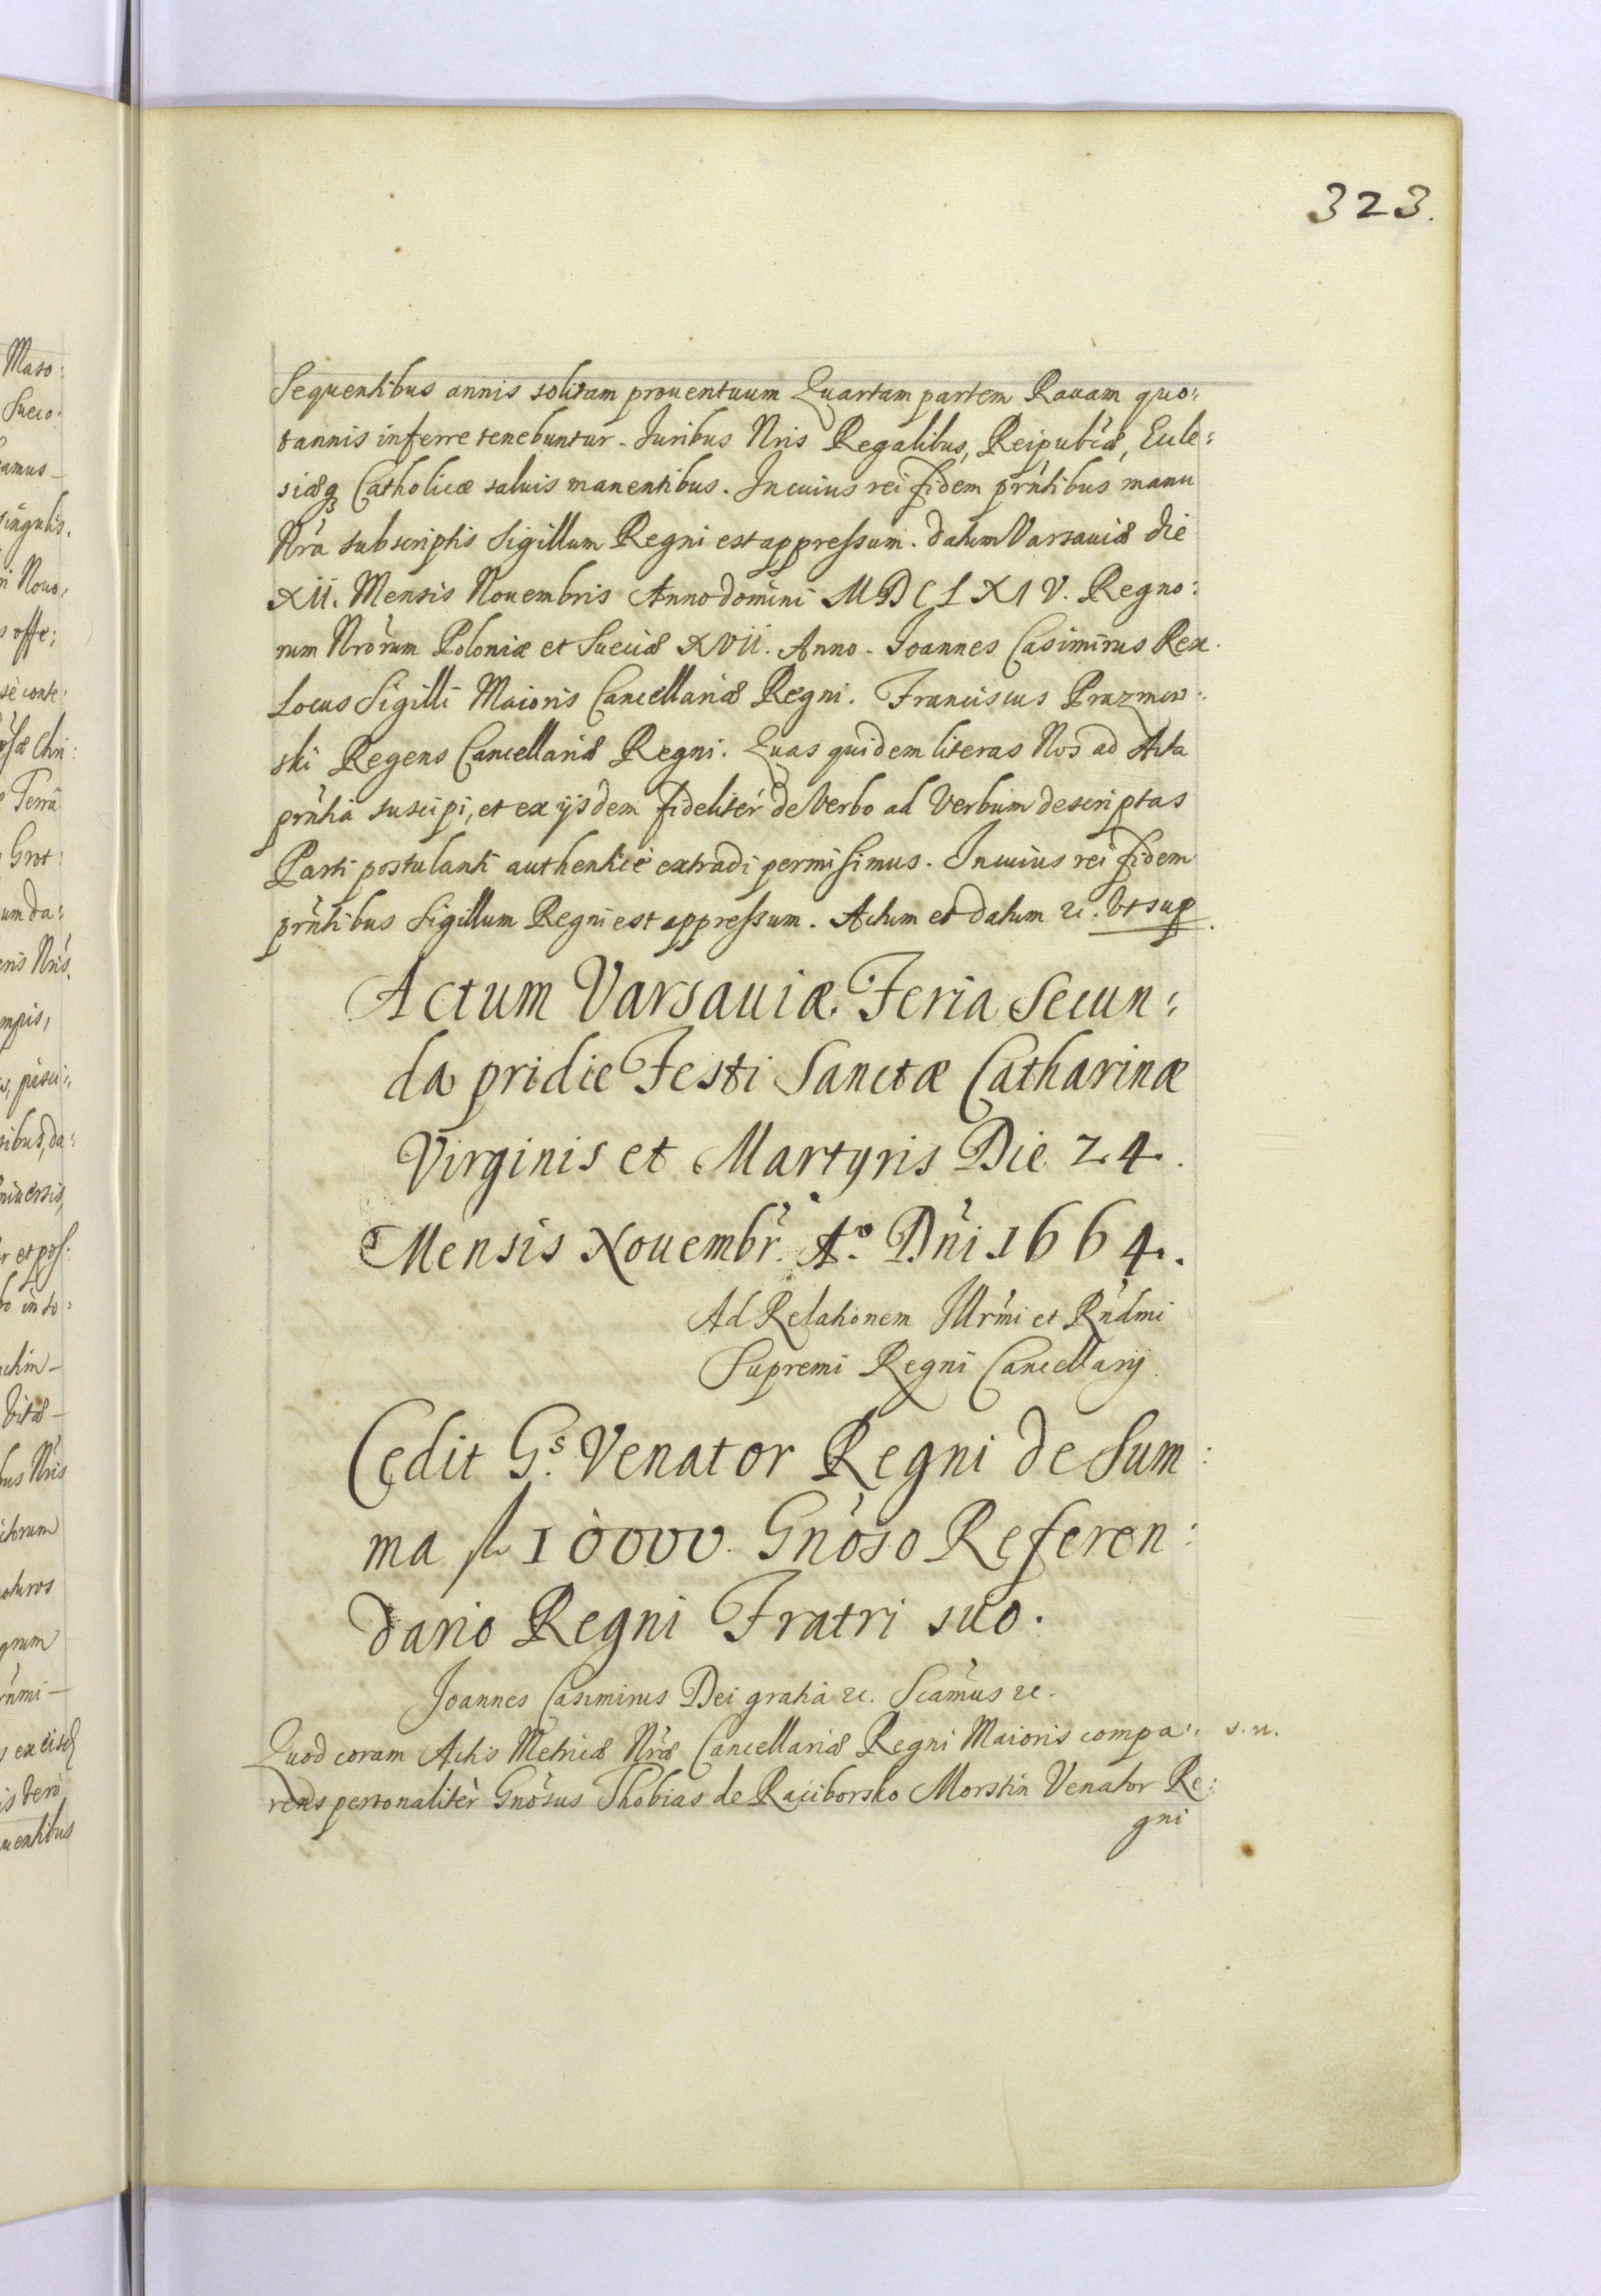 323.
Sequentibus annis solitam prouentuum Quartam partem Rauam quo:
tannis inferre tenebuntur. Iuribus Nris Regalibus, Reipublcæ, Eccle:
siæq3 Catholicæ saluis manentibus. In cuius rei fidem prntibus manu
Nra subscriptis Sigillum Regni est appressum. Datum Varsauiæ die
XII. Mensis Nouembris Anno domini MDCLXIV. Regno:
rum Nrorum Poloniæ et Sueciæ XVII. Anno. Joannes Casimirus Rex.
Locus Sigilli Maioris Cancellariæ Regni. Franciscus Prazmow:
ski Regens Cancellariæ Regni. Quas quidem literas Nos ad Acta
prntia suscipi, et ex ijsdem fideliter de Verbo ad Verbum descriptas
Parti postulanti authentice extradi permisimus. In cuius rei fidem
prntibus Sigillum Regni est appressum. Actum et datum etc. Vt sup.
Actum Varsauiæ. Feria Secun:
da pridie Festi Sanctæ Catharinæ
Virginis et Martyris Die 24.
Mensis Nouembr. Aº. Dni 1664.
Ad Relationem Illrmi et Rndmi
Supremi Regni Cancellarij.
Cedit Gs. Venator Regni de Sum:
ma fl 10000. Gnoso Referen:
dario Regni Fratri suo.
Joannes Casimirus Dei gratia etc. Scamus etc.
Quod coram Actis Metricæ Nræ Cancellariæ Regni Maioris compa: s. n.
rens personaliter Gnosus Thobias de Raciborsko Morstin Venator Re:
gni